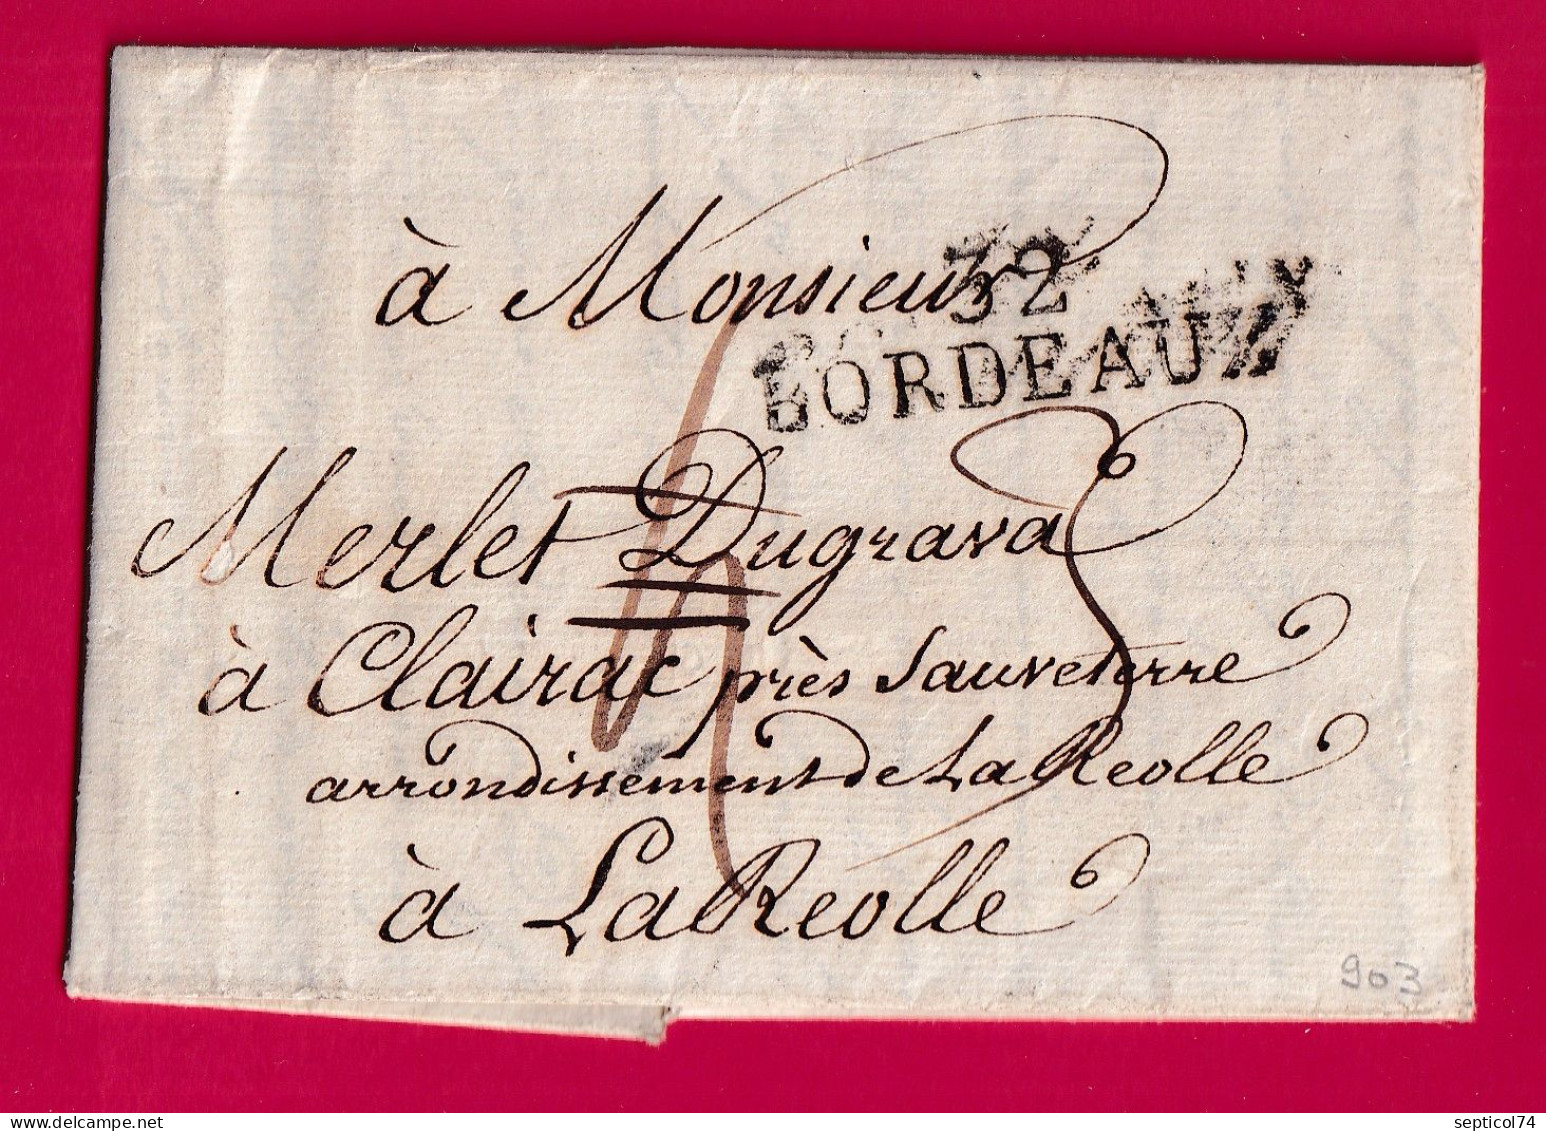 à Monsieur
32
BORDEAUX
Merlet Dugrava
à Clairac près Sauveterre
arrondissement de La Reolle
à La Reolle
903
www.delcampe.net
septicol74